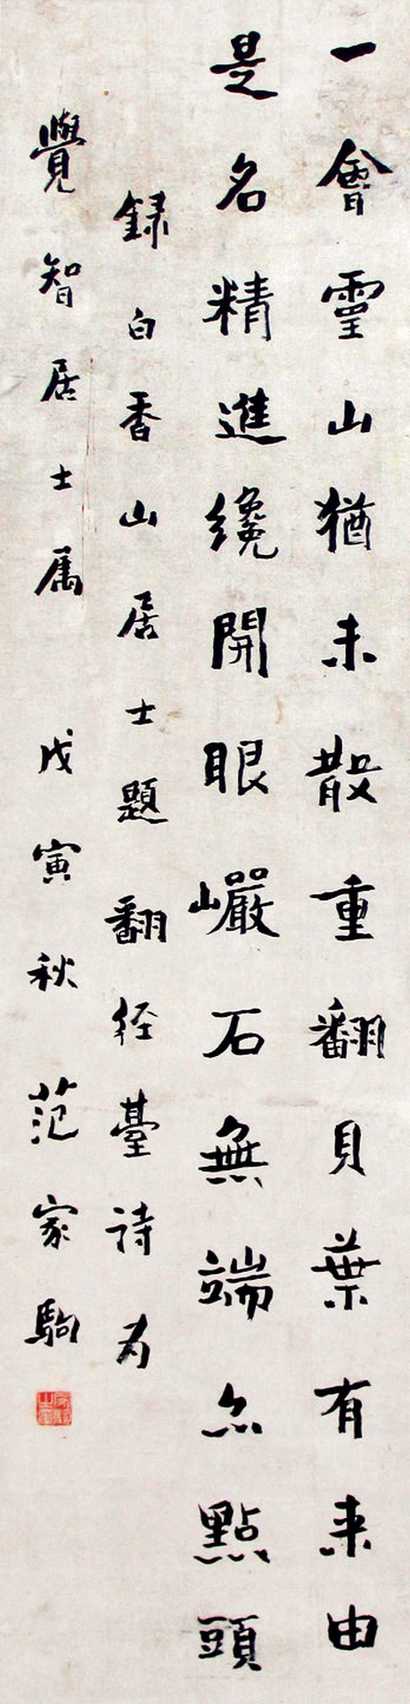 一會靈山猶未散重翻貝葉有来由
是名精進纔開眼巖石無端亦點頭
録白香山居士題翻经臺詩为
覺智居士属 戊寅秋 范家駒